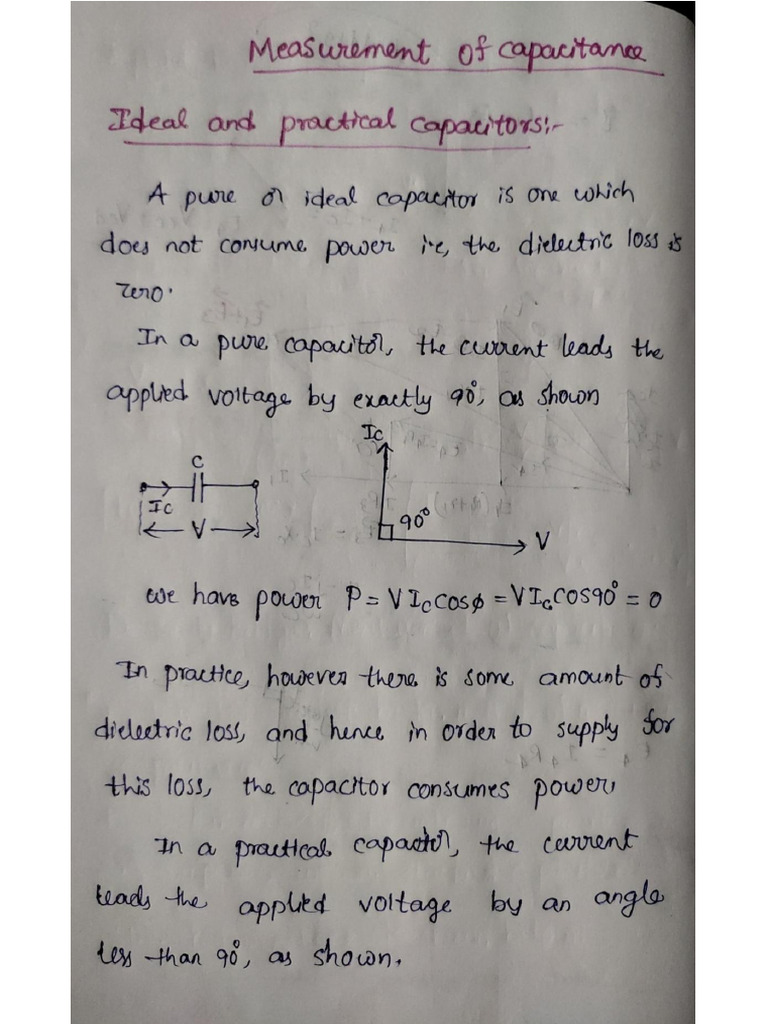 Measurement of capacitance
Ideal and practical capacitors:-
A pure or ideal capacitor is one which
does not consume power i.e, the dielectric loss is
zero.
In a pure capacitor, the current leads the
applied voltage by exactly 90°, as shown
Ic
C
Ic
90°
V
V
we have power P = V Ic cosφ = V Ic cos90° = 0
In practice, however there is some amount of
dielectric loss, and hence in order to supply for
this loss, the capacitor consumes power.
In a practical capacitor, the current
leads the applied voltage by an angle
less than 90°, as shown.